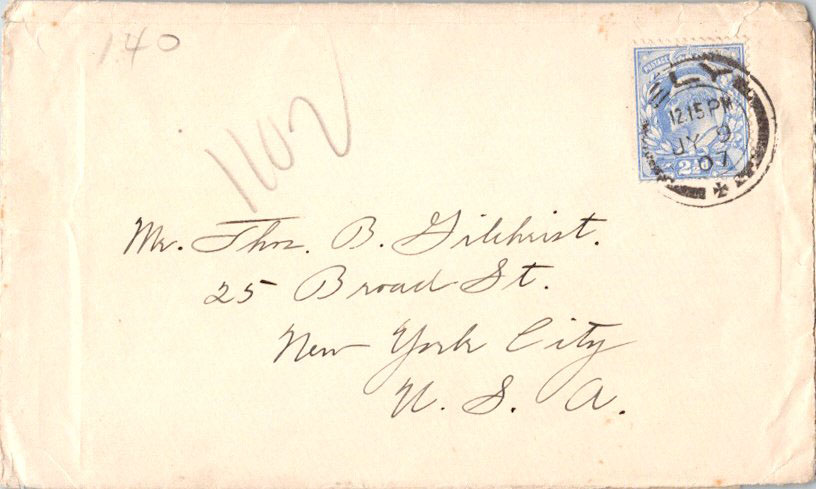 140
1102
POSTAGE
ELY
12.15 PM
JY 9
07
2½d
Mr. Thos. B. Gilchrist.
25 Broad St.
New York City
U. S. A.